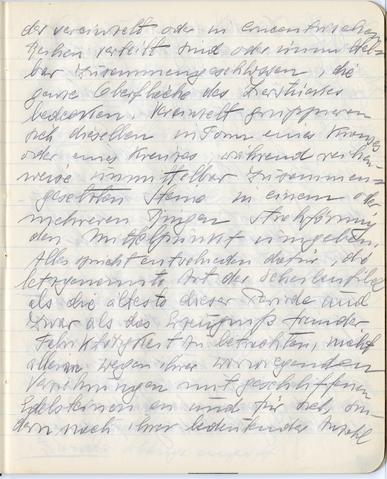 der vereinzelt oder in concentrischen
Reihen verteilt sind oder unmittel-
bar zusammengeschlossen, die
ganze Oberfläche des Zierstückes
bedecken. Vereinzelt gruppieren
sich dieselben in Form eines
oder eines Kreuzes, während reihen
weise unmittelbar zusammen-
gesetzten Steine in einem oder
mehreren Ringen
den Mittelpunkt umgeben.
Alles spricht entschieden dafür, die
letztgenannte Art der Scheibenfibel
als die älteste dieser Periode und
zwar als das Erzeugniß fremder
Fabrikthätigkeit zu betrachten, nicht
allein wegen ihrer vorwiegenden
Verzierungen mit geschliffenen
Edelsteinen an und für sich, son-
dern nach ihrer bedeutenden Anzahl